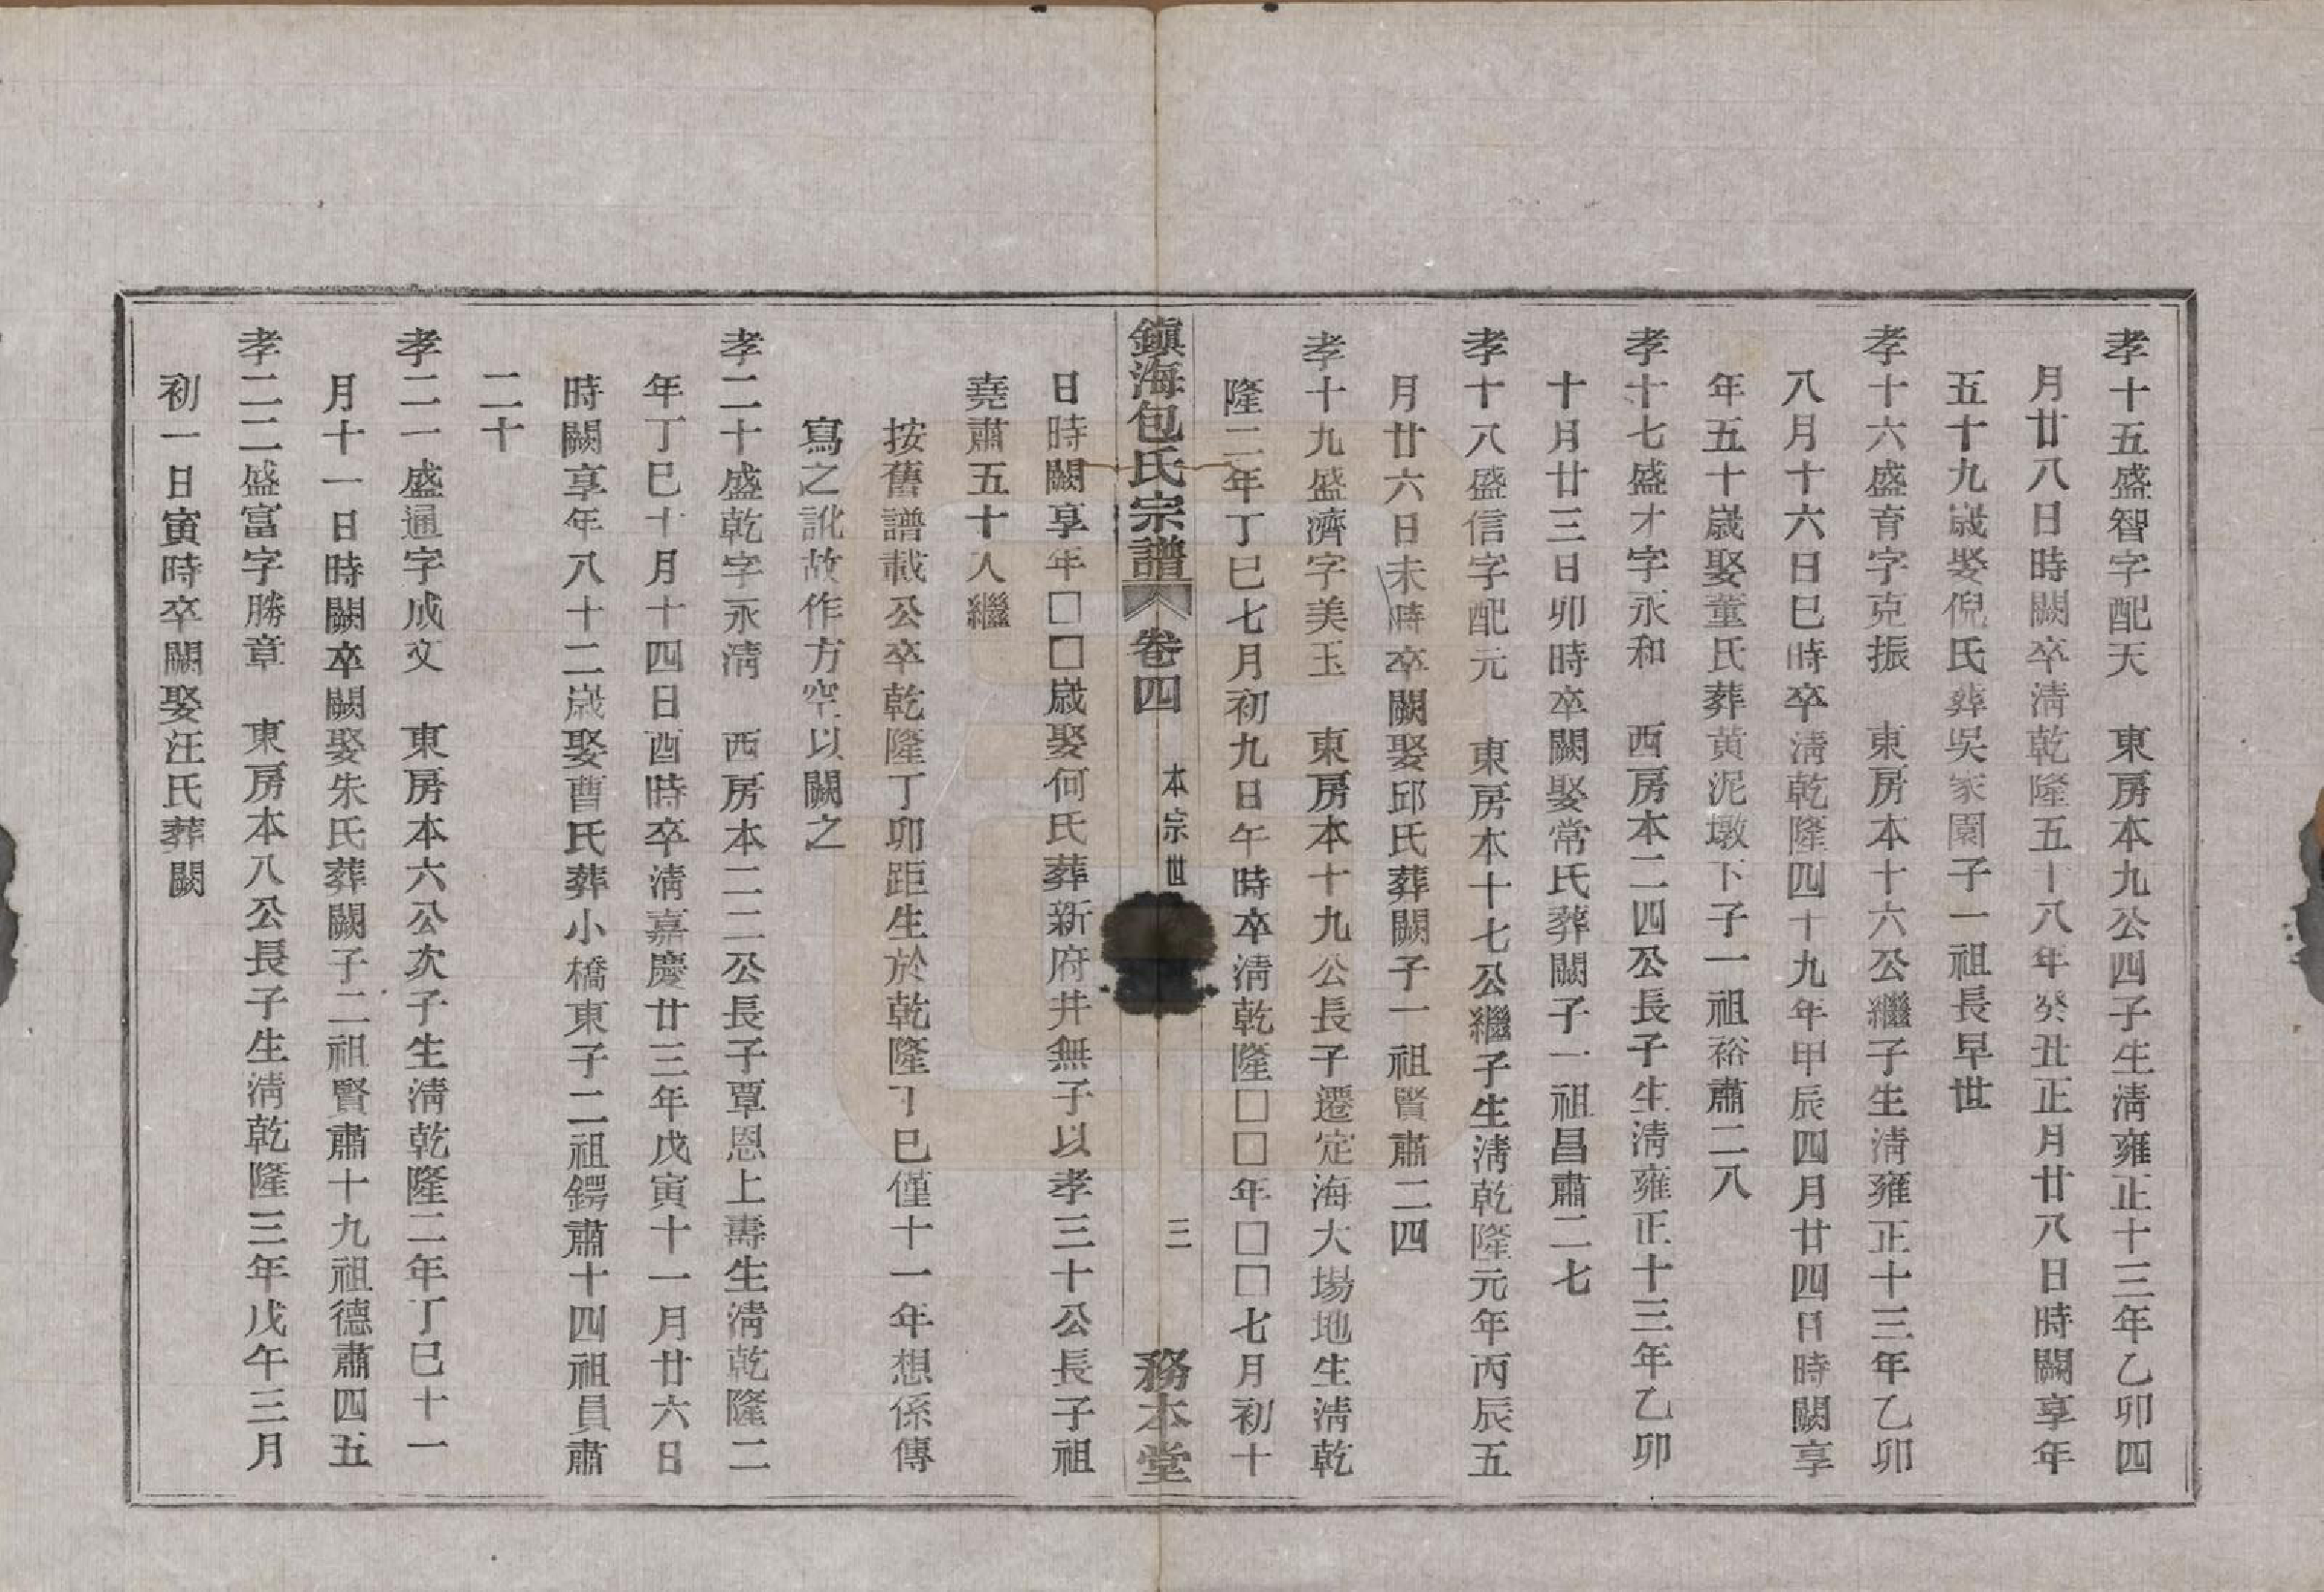 孝十五盛智字配天　東房本九公四子生淸雍正十三年乙卯四
月廿八日時闕卒淸乾隆五十八年癸丑正月廿八日時闕享年
五十九歲娶倪氏葬吳家園子一祖長早世
孝十六盛育字克振　東房本十六公繼子生淸雍正十三年乙卯
八月十六日巳時卒淸乾隆四十九年甲辰四月廿四日時闕享
年五十歲娶董氏葬黃泥墩下子一祖裕肅二八
孝十七盛才字永和　西房本二四公長子生淸雍正十三年乙卯
十月廿三日卯時卒闕娶常氏葬闕子一祖昌肅二七
孝十八盛信字配元　東房本十七公繼子生淸乾隆元年丙辰五
月廿六日未時卒闕娶邱氏葬闕子一祖賢肅二四
孝十九盛濟字美玉　東房本十九公長子遷定海大場地生淸乾
隆二年丁巳七月初九日午時卒淸乾隆□□年□□七月初十
鎭海包氏宗譜　卷四　本宗世　三　務本堂
日時闕享年□□歲娶何氏葬新府井無子以孝三十公長子祖
堯肅五十入繼
按舊譜載公卒乾隆丁卯距生於乾隆丁巳僅十一年想係傳
寫之訛故作方空以闕之
孝二十盛乾字永淸　西房本二二公長子覃恩上壽生淸乾隆二
年丁巳十月十四日酉時卒淸嘉慶廿三年戊寅十一月廿六日
時闕享年八十二歲娶曹氏葬小橋東子二祖鍔肅十四祖員肅
二十
孝二一盛通字成文　東房本六公次子生淸乾隆二年丁巳十一
月十一日時闕卒闕娶朱氏葬闕子二祖賢肅十九祖德肅四五
孝二二盛富字勝章　東房本八公長子生淸乾隆三年戊午三月
初一日寅時卒闕娶汪氏葬闕